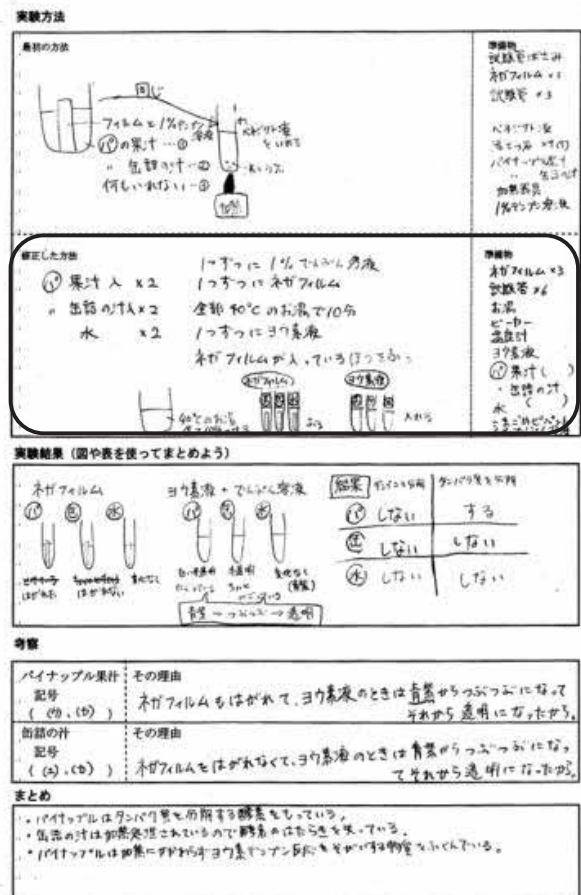 実験方法
最初の方法
準備物
試験管ばさみ
ネガフィルム ×3
試験管 ×3
同じ
フィルムと1%デンプン溶液
ベネジクト液
をいれる
㋩の果汁…①
〃 缶詰の汁…②
何もいれない…③
加熱
ベネジクト液
パイナップル果汁
加熱器具
1%デンプン溶液
修正した方法
㋩果汁入 ×2
〃 缶詰の汁入 ×2
水 ×2
1つずつに1%でんぷん溶液
1つずつにネガフィルム
全部40℃のお湯で10分
1つずつにヨウ素液
ネガフィルムが入っているほうをふる
ネガフィルム
ヨウ素液
40℃のお湯
ふる
入れる
準備物
ネガフィルム ×3
試験管 ×6
お湯
ビーカー
温度計
ヨウ素液
㋩果汁( )
〃 缶詰の汁
水 ( )
こまごめピペット
実験結果(図や表を使ってまとめよう)
ネガフィルム
パ 缶 水
はがれた はがれない 変化なし
ヨウ素液+でんぷん溶液
パ 缶 水
白い半透明 半透明 変化なし
(青紫)
青紫→つぶつぶ→透明
結果 デンプンを分解 タンパク質を分解
パ しない する
缶 しない しない
水 しない しない
考察
パイナップル果汁 その理由
記号
ネガフィルムもはがれて、ヨウ素液のときは青紫からつぶつぶになって
それから透明になったから。
缶詰の汁 その理由
記号
ネガフィルムもはがれなくて、ヨウ素液のときは青紫からつぶつぶになっ
てそれから透明になったから。
まとめ
・パイナップルはタンパク質を分解する酵素をもっている。
・缶詰の汁は加熱処理されているので酵素のはたらきを失っている。
・パイナップルは加熱にかかわらずヨウ素デンプン反応をそがいする物質をふくんでいる。